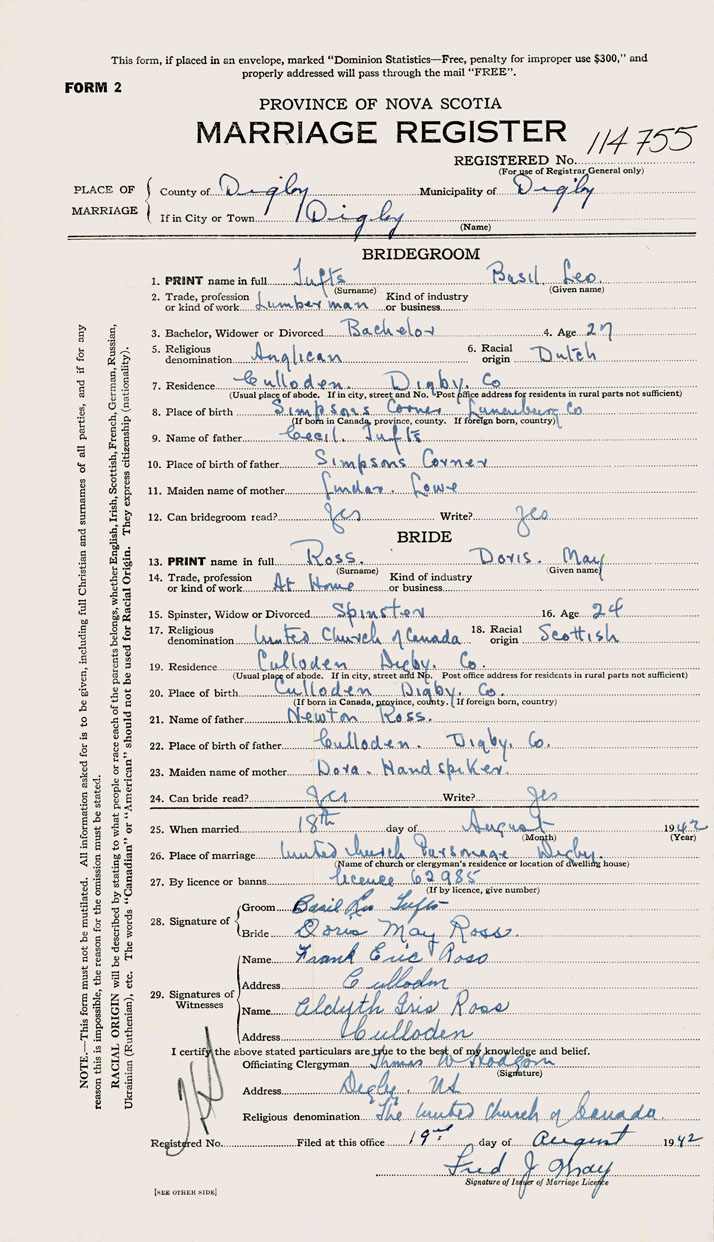 This form, if placed in an envelope, marked "Dominion Statistics—Free, penalty for improper use $300," and
properly addressed will pass through the mail "FREE".
FORM 2
PROVINCE OF NOVA SCOTIA
MARRIAGE REGISTER
114755
REGISTERED No.
(For use of Registrar General only)
PLACE OF MARRIAGE
County of Digby Municipality of Digby
If in City or Town Digby
(Name)
BRIDEGROOM
1. PRINT name in full Tufts Basil Leo.
(Surname) (Given name)
2. Trade, profession or kind of work Lumberman Kind of industry or business
3. Bachelor, Widower or Divorced Bachelor 4. Age 27
5. Religious denomination Anglican 6. Racial origin Dutch
7. Residence Culloden. Digby. Co
(Usual place of abode. If in city, street and No. Post office address for residents in rural parts not sufficient)
8. Place of birth Simpsons Corner Lunenburg Co
(If born in Canada, province, county. If foreign born, country)
9. Name of father Cecil. Tufts
10. Place of birth of father Simpsons Corner
11. Maiden name of mother Lowe
12. Can bridegroom read? Yes Write? Yes
BRIDE
13. PRINT name in full Ross. Doris. May
(Surname) (Given name)
14. Trade, profession or kind of work At Home Kind of industry or business
15. Spinster, Widow or Divorced Spinster 16. Age 24
17. Religious denomination United Church of Canada 18. Racial origin Scottish
19. Residence Culloden Digby. Co.
(Usual place of abode. If in city, street and No. Post office address for residents in rural parts not sufficient)
20. Place of birth Culloden Digby. Co.
(If born in Canada, province, county. If foreign born, country)
21. Name of father Newton Ross.
22. Place of birth of father Culloden. Digby. Co.
23. Maiden name of mother Dora. Handspiker.
24. Can bride read? Yes Write? Yes
25. When married 18th day of August 1942
(Month) (Year)
26. Place of marriage United Church Parsonage Digby.
(Name of church or clergyman's residence or location of dwelling house)
27. By licence or banns licence 62985
(If by licence, give number)
28. Signature of
Groom Basil Leo Tufts
Bride Doris May Ross.
29. Signatures of Witnesses
Name Frank Eric Ross
Address Culloden
Name Aldyth Iris Ross
Address Culloden
I certify the above stated particulars are true to the best of my knowledge and belief.
Officiating Clergyman Thomas W Hodgson
(Signature)
Address Digby. NS
Religious denomination The United Church of Canada.
Registered No. Filed at this office 19th day of August 1942
Fred J May
Signature of Issuer of Marriage Licence
[SEE OTHER SIDE]
NOTE.—This form must not be mutilated. All information asked for is to be given, including full Christian and surnames of all parties, and if for any
reason this is impossible, the reason for the omission must be stated.
RACIAL ORIGIN will be described by stating to what people or race each of the parents belongs, whether English, Irish, Scottish, French, German, Russian,
Ukrainian (Ruthenian), etc. The words "Canadian" or "American" should not be used for Racial Origin. They express citizenship (nationality).